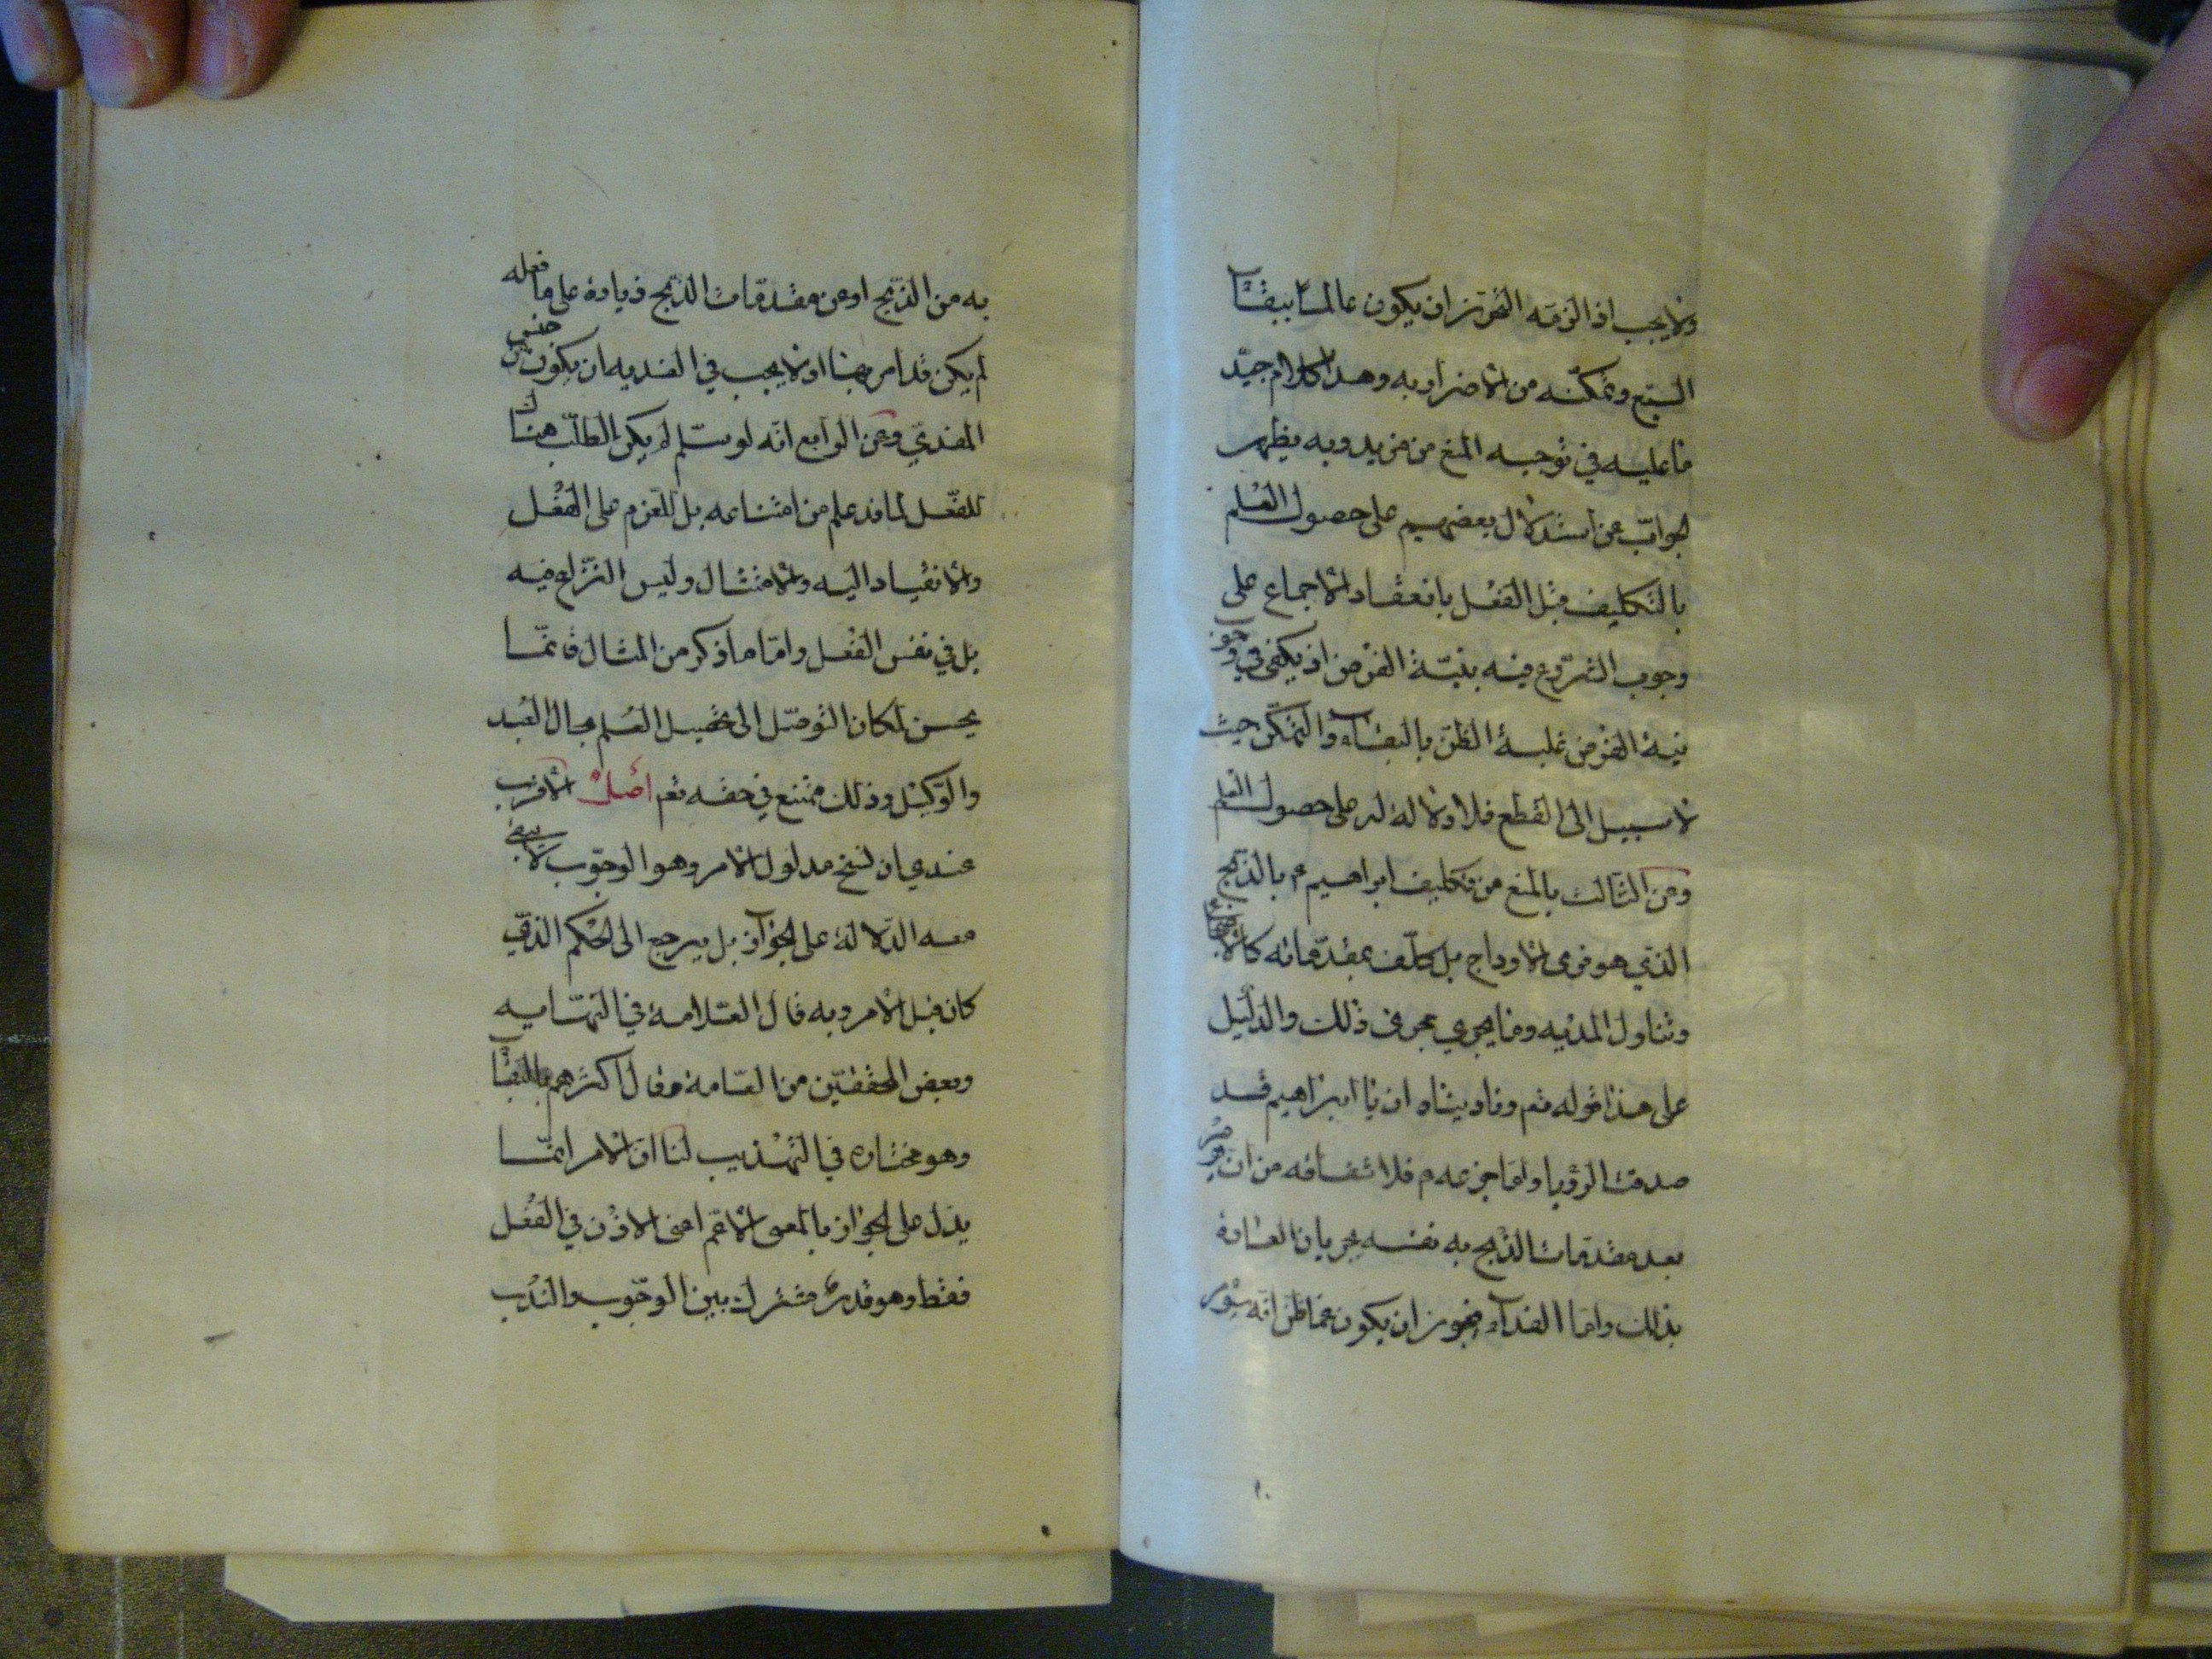 ولا يجب اذا لزمه التحرز ان يكون عالما ببقاء
السبع وتمكنه من الاضرار به وهذا كلام جيد
ما عليه في توجيه المنع من مزيد وبه يظهر
الجواب عن استدلال بعضهم على حصول العلم
بالتكليف قبل الفعل بانعقاد الاجماع على
وجوب الشروع فيه بنية الفرض اذ يكفي في وجوب
نية الفرض غلبة الظن بالبقاء والتمكن حيث
لا سبيل الى القطع فلا دلالة له على حصول العلم
وعن الثالث بالمنع من تكليف ابراهيم ع بالذبح
الذي هو فري الاوداج بل كلف بمقدماته كالاضجاع
وتناول المدية وما يجري مجرى ذلك والدليل
على هذا قوله تعم وناديناه ان يا ابراهيم قد
صدقت الرؤيا واما جزعه م فلاشفاقه من ان يؤمر
بعد مقدمات الذبح به نفسه لجريان العادة
بذلك واما الفداء فيجوز ان يكون عما ظن انه سيؤمر
به من الذبح او عن مقدمات الذبح زيادة على ما فعله
لم يكن قد امر بها اذ لا يجب في الفدية ان يكون من جنس
المفدي وعن الرابع انه لو سلم لم يكن الطلب هناك
للفعل لما قد علم من امتناعه بل للعزم على الفعل
والانقياد اليه والامتثال وليس النزاع فيه
بل في نفس الفعل واما ما ذكر من المثال فانما
يحسن لمكان التوصل الى تحصيل العلم بحال العبد
والوكيل وذلك ممتنع في حقه تعم اصل الاقرب
عندي ان نسخ مدلول الامر وهو الوجوب لا يبقى
معه الدلالة على الجواز بل يرجع الى الحكم الذي
كان قبل الامر وبه قال العلامة في النهاية
وبعض المحققين من العامة وقال اكثرهم بالبقاء
وهو مختاره في التهذيب لنا ان الامر انما
يدل على الجواز بالمعنى الاعم اعني الاذن في الفعل
فقط وهو قدر مشترك بين الوجوب والندب